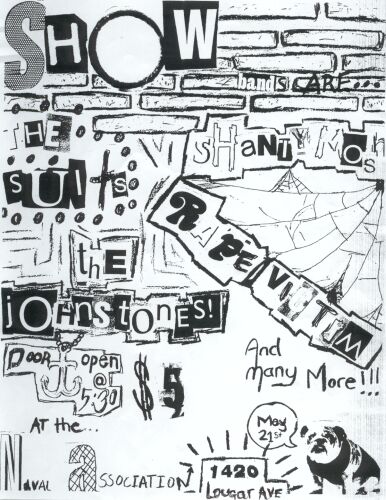 SHOW
bands CARE...
THE
SUits
SHANTY Mos
RAPE VICTIM
thE
johnstones!
DOOR open
@
5:30
$5
And
many More!!!
At the...
Naval Association
May
21st
1420
Cougar AVE